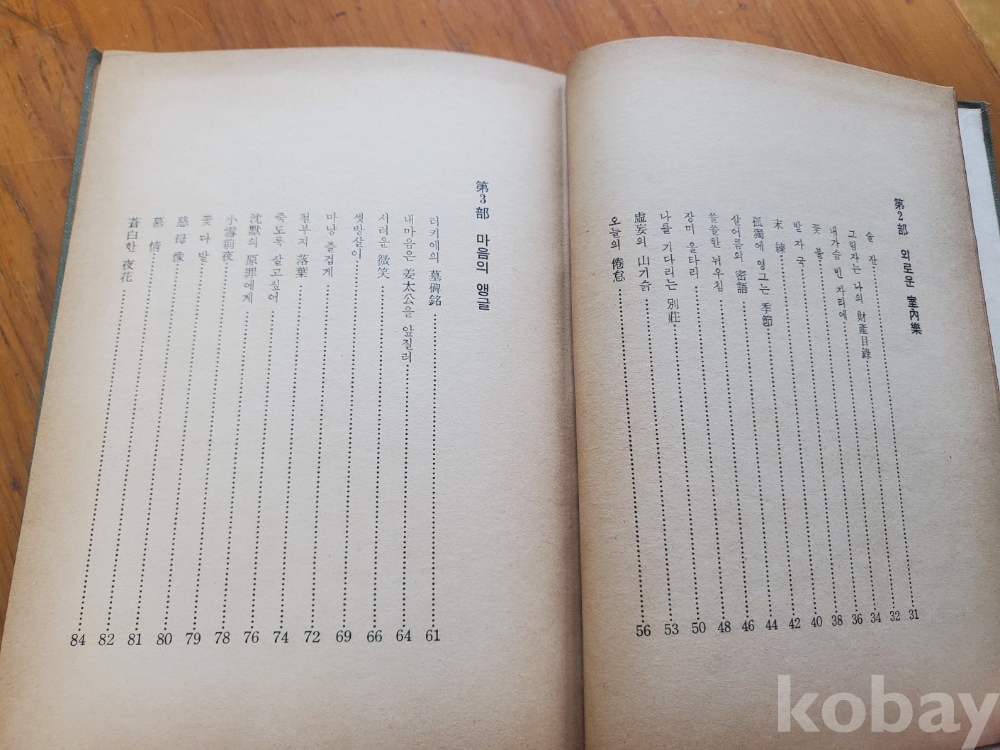 第2部 외로운 室內樂
술 잔 31
그림자는 나의 財產目錄 32
내가슴 빈 자리에 34
꽃 불 36
발 자 국 38
末 練 40
孤獨에 영그는 季節 42
살어름의 密語 44
쓸쓸한 뉘우침 46
장미 울타리 48
나를 기다리는 別莊 50
虛妄의 山기슭 53
오늘의 倦怠 56
第3部 마음의 앵글
러키에의 墓碑銘 61
내마음은 姜太公을 앞질러 64
서러운 微笑 66
셋방살이 69
마냥 즐겁게 72
천부지 落葉 74
죽도록 살고싶어 76
沈默의 原罪에게 78
小雪前夜 79
꽃 다 발 80
慈 母 像 81
慕 情 82
蒼白한 夜花 84
kobay